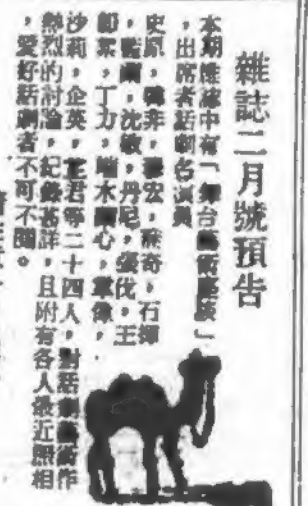 雜誌二月號預告
本期雜誌中有「舞台藝術座談」
，出席者話劇名演員
史原，韓非，穆宏，蔣奇，石揮
，藍蘭，沈敏，丹尼，張伐，王
，丁力，端木蘭心，韋偉，
沙莉，企英，芷君等二十四人，對話劇藝術作
熱烈的討論，紀錄甚詳，且附有各人最近照相
，愛好話劇者不可不閱。